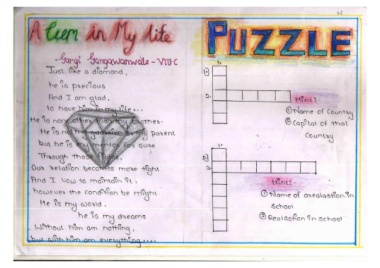 A Gem in My life
Just like a diamond,
he is precious
And I am glad,
to have him in my life...
He is none other than my brother.
He is not my guardian or my parent
but he is
Through those fights,
Our relation becomes more tight
And I vow to maintain it,
however the condition be might
He is my world,
he is my dreams
Without him am nothing,
but with him am everything....
PUZZLE
Hint:
① Name of Country
② Capital of that
Country
Hint:
① Name of
in
school
② Realisation in school